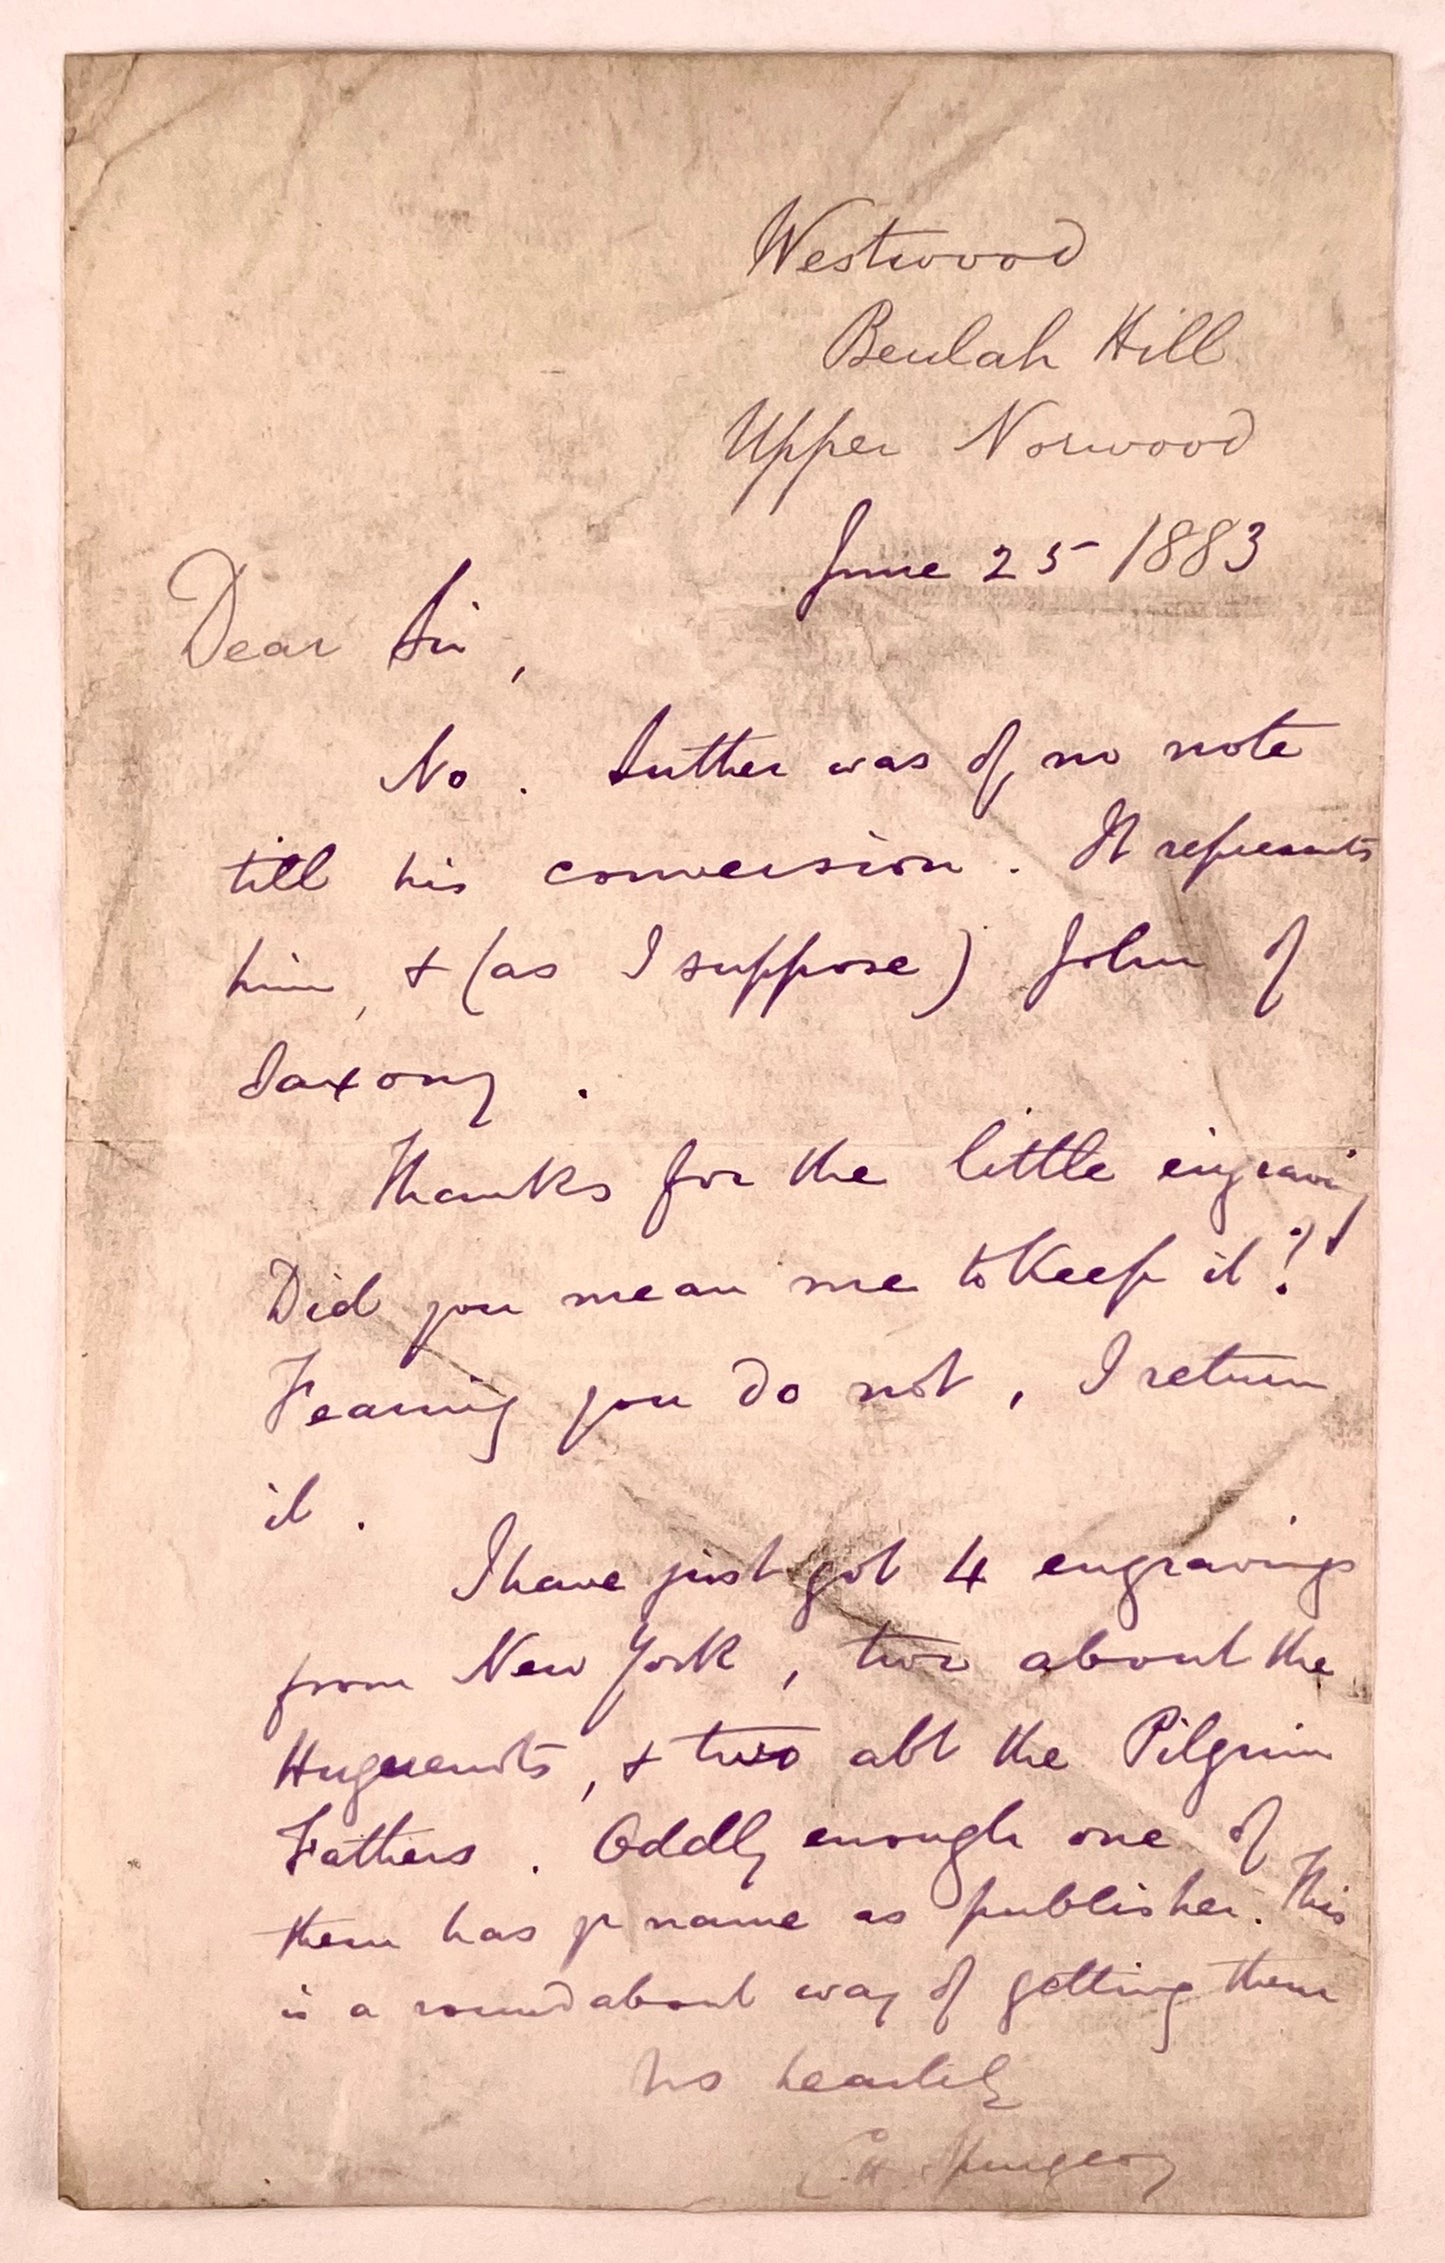 Westwood
Beulah Hill
Upper Norwood
June 25 1883
Dear Sir,
No. Luther was of no note
till his conversion. It represents
him, & (as I suppose) John of
Saxony.
Thanks for the little engraving
Did you mean me to keep it?
Fearing you do not, I return
it.
I have just got 4 engravings
from New York, two about the
Huguenots, & two abt the Pilgrim
Fathers. Oddly enough one of
them has yr name as publisher. This
is a roundabout way of getting them
Yrs heartily
C. H. Spurgeon